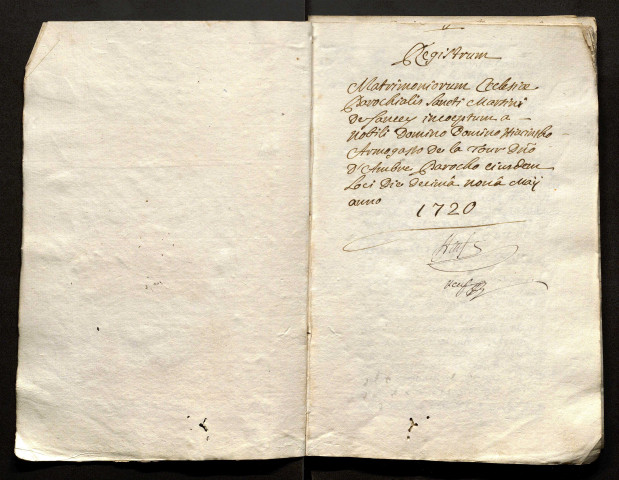 Registrum
Matrimoniorum Ecclesiæ
Parochialis Sancti Martini
De Sancey incoeptum a
Nobili Domino Domino
Armogasto de la Tour Dño
D'Ambre Parocho eiusdem
Loci Die decimâ nonâ Maÿ
anno
1720